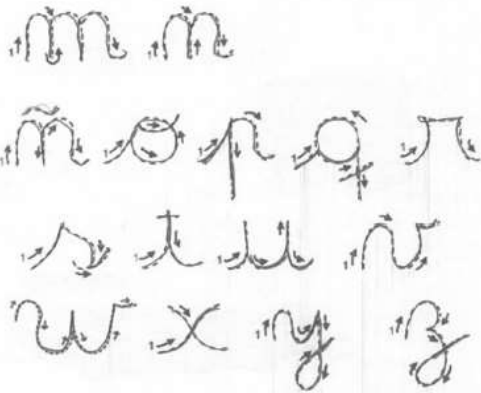 m n
ñ o p q r
s t u v
w x y z